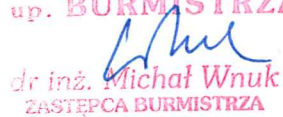 up. BURMISTRZA
dr inż. Michał Wnuk
ZASTĘPCA BURMISTRZA